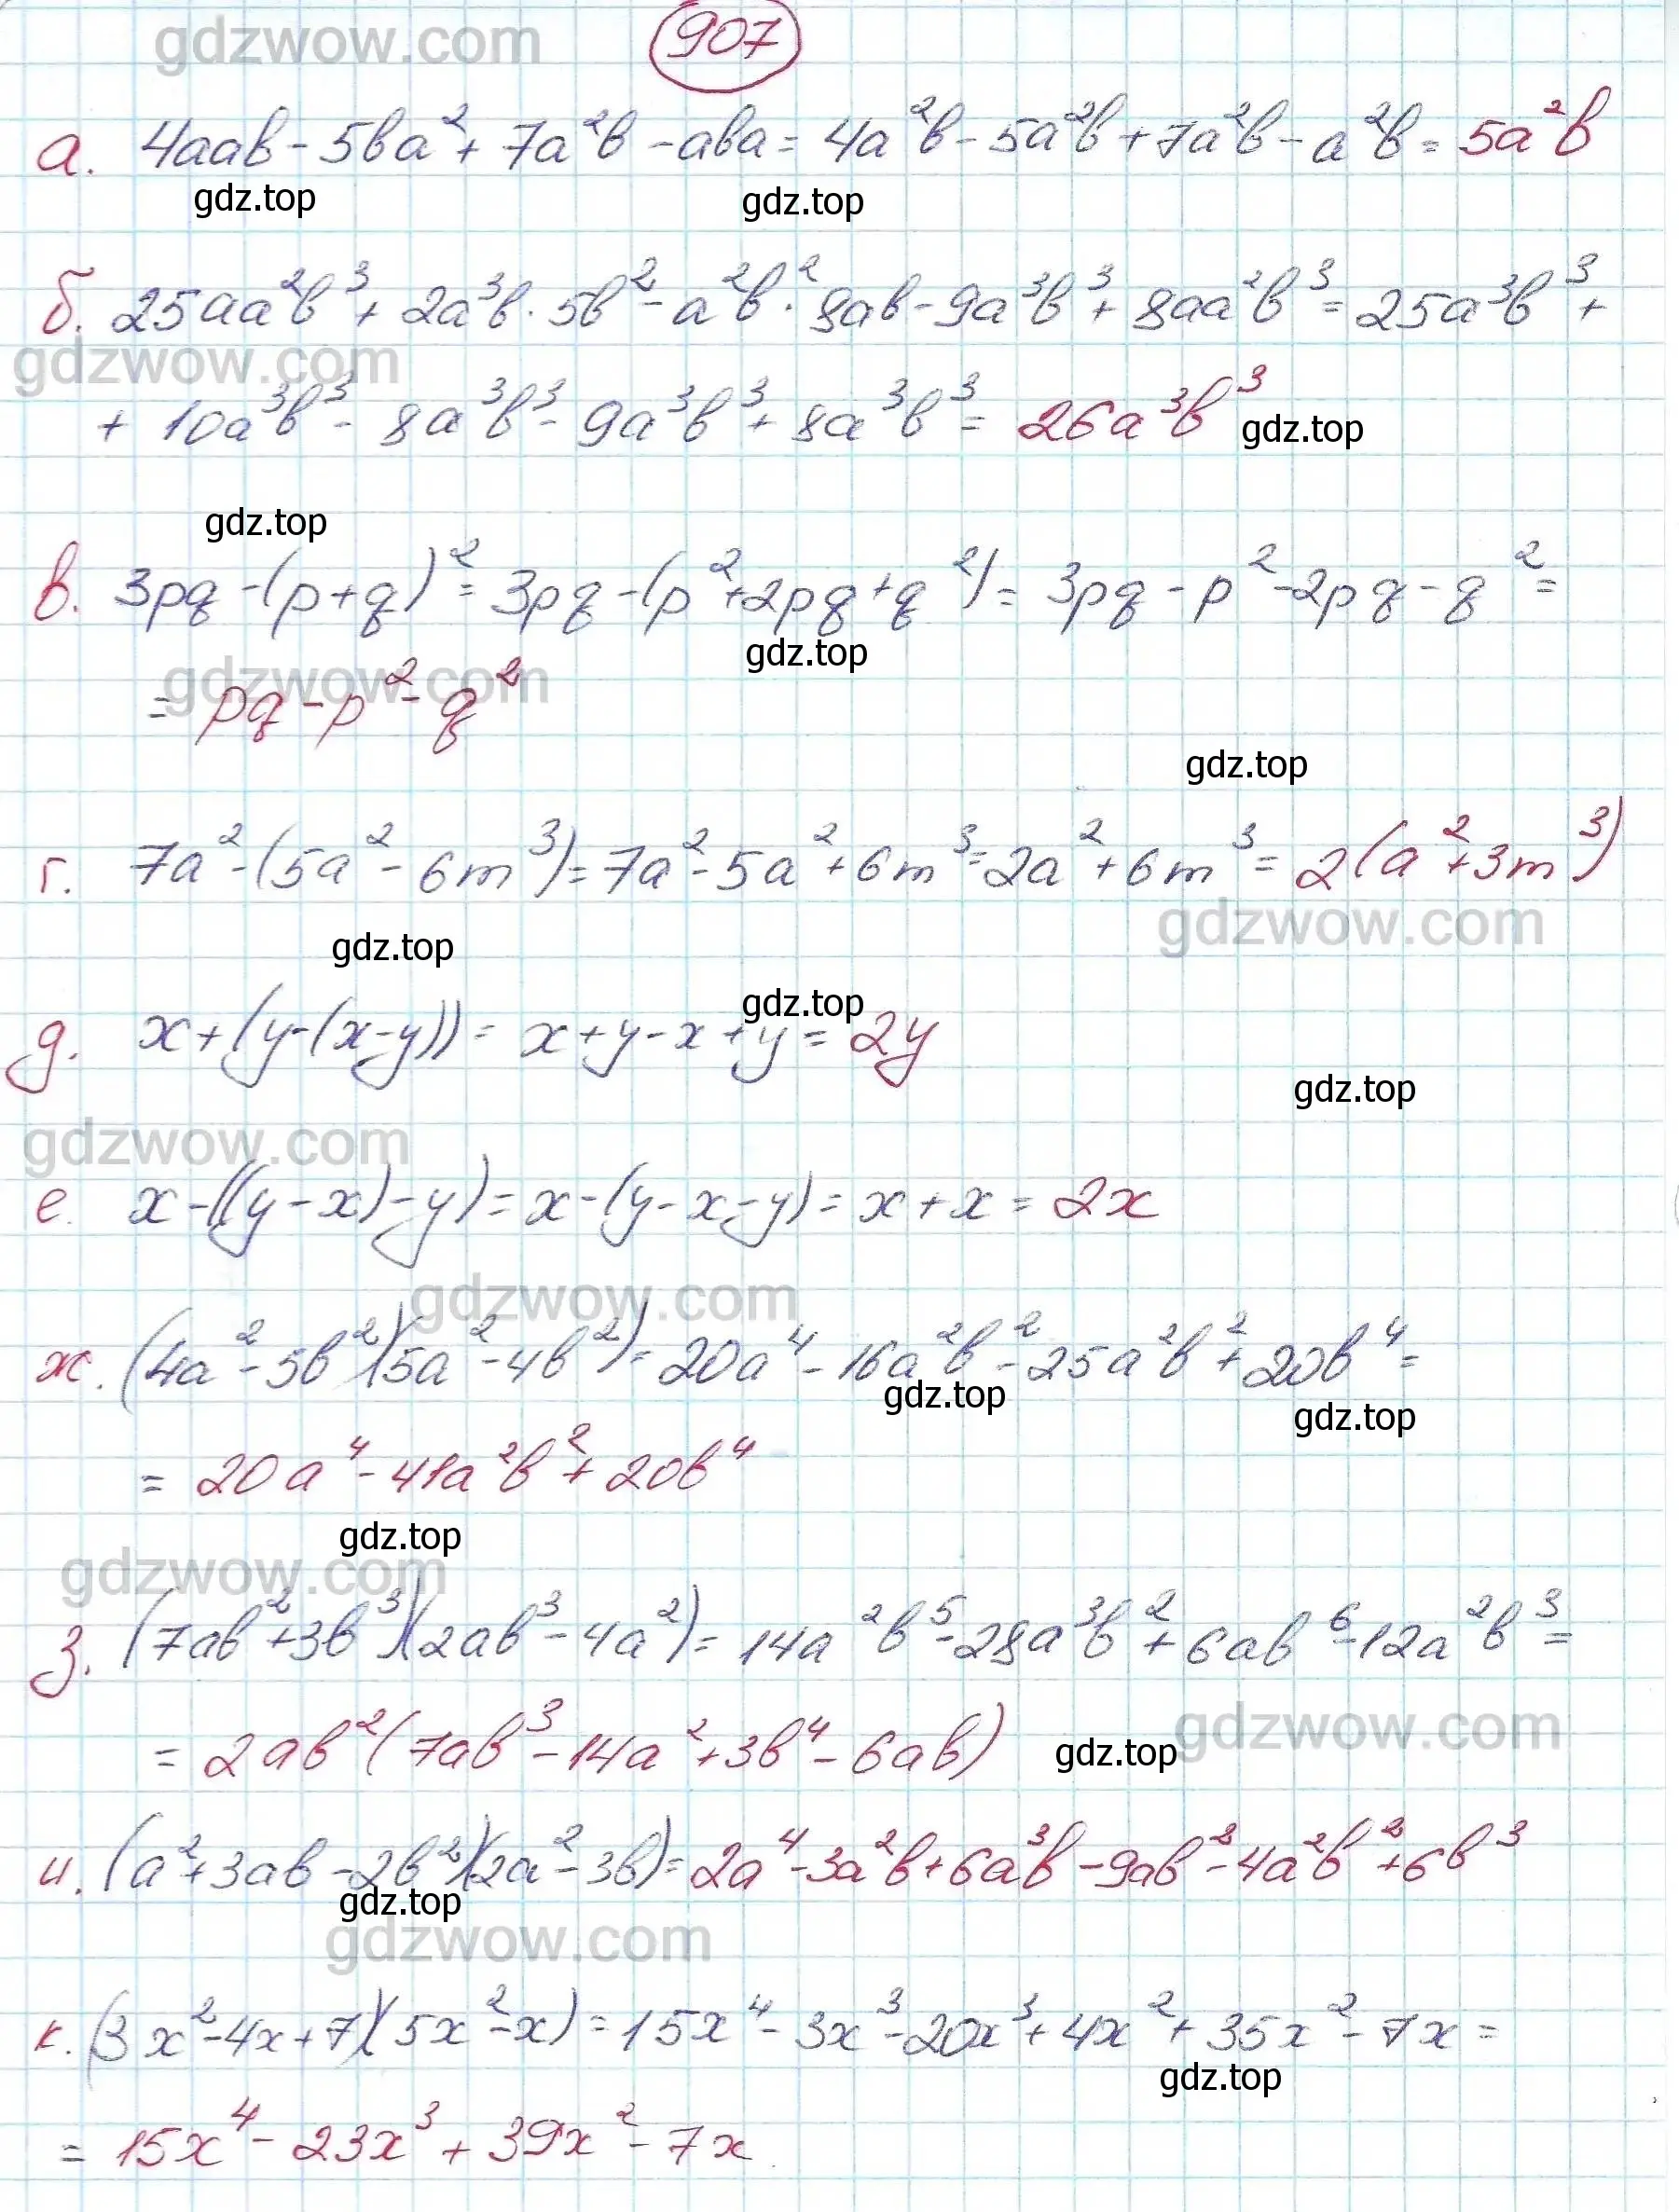 gdzwow.com
907
а. 4aab - 5ba² + 7a²b - aba = 4a²b - 5a²b + 7a²b - a²b = 5a²b
gdz.top gdz.top
б. 25aa²b³ + 2a³b · 5b² - a²b² · 8ab - 9a³b³ + 8aa²b³ = 25a³b³ +
gdzwow.com
+ 10a³b³ - 8a³b³ - 9a³b³ + 8a³b³ = 26a³b³
gdz.top
gdz.top
в. 3pq - (p + q)² = 3pq - (p² + 2pq + q²) = 3pq - p² - 2pq - q² =
gdz.top
gdzwow.com
= pq - p² - q²
gdz.top
г. 7a² - (5a² - 6m³) = 7a² - 5a² + 6m³ = 2a² + 6m³ = 2(a² + 3m³)
gdzwow.com
gdz.top
gdz.top
д. x + (y - (x - y)) = x + y - x + y = 2y
gdz.top
gdzwow.com
е. x - ((y - x) - y) = x - (y - x - y) = x + x = 2x
gdzwow.com
ж. (4a² - 5b²)(5a² - 4b²) = 20a⁴ - 16a²b² - 25a²b² + 20b⁴ =
gdz.top gdz.top
= 20a⁴ - 41a²b² + 20b⁴
gdz.top
gdzwow.com
з. (7ab² + 3b³)(2ab³ - 4a²) = 14a²b⁵ - 28a³b² + 6ab⁶ - 12a²b³ =
gdzwow.com
= 2ab²(7ab³ - 14a² + 3b⁴ - 6ab) gdz.top
и. (a² + 3ab - 2b²)(2a² - 3b) = 2a⁴ - 3a²b + 6a³b - 9ab² - 4a²b² + 6b³
gdz.top
gdzwow.com
к. (3x² - 4x + 7)(5x² - x) = 15x⁴ - 3x³ - 20x³ + 4x² + 35x² - 7x =
gdz.top
= 15x⁴ - 23x³ + 39x² - 7x